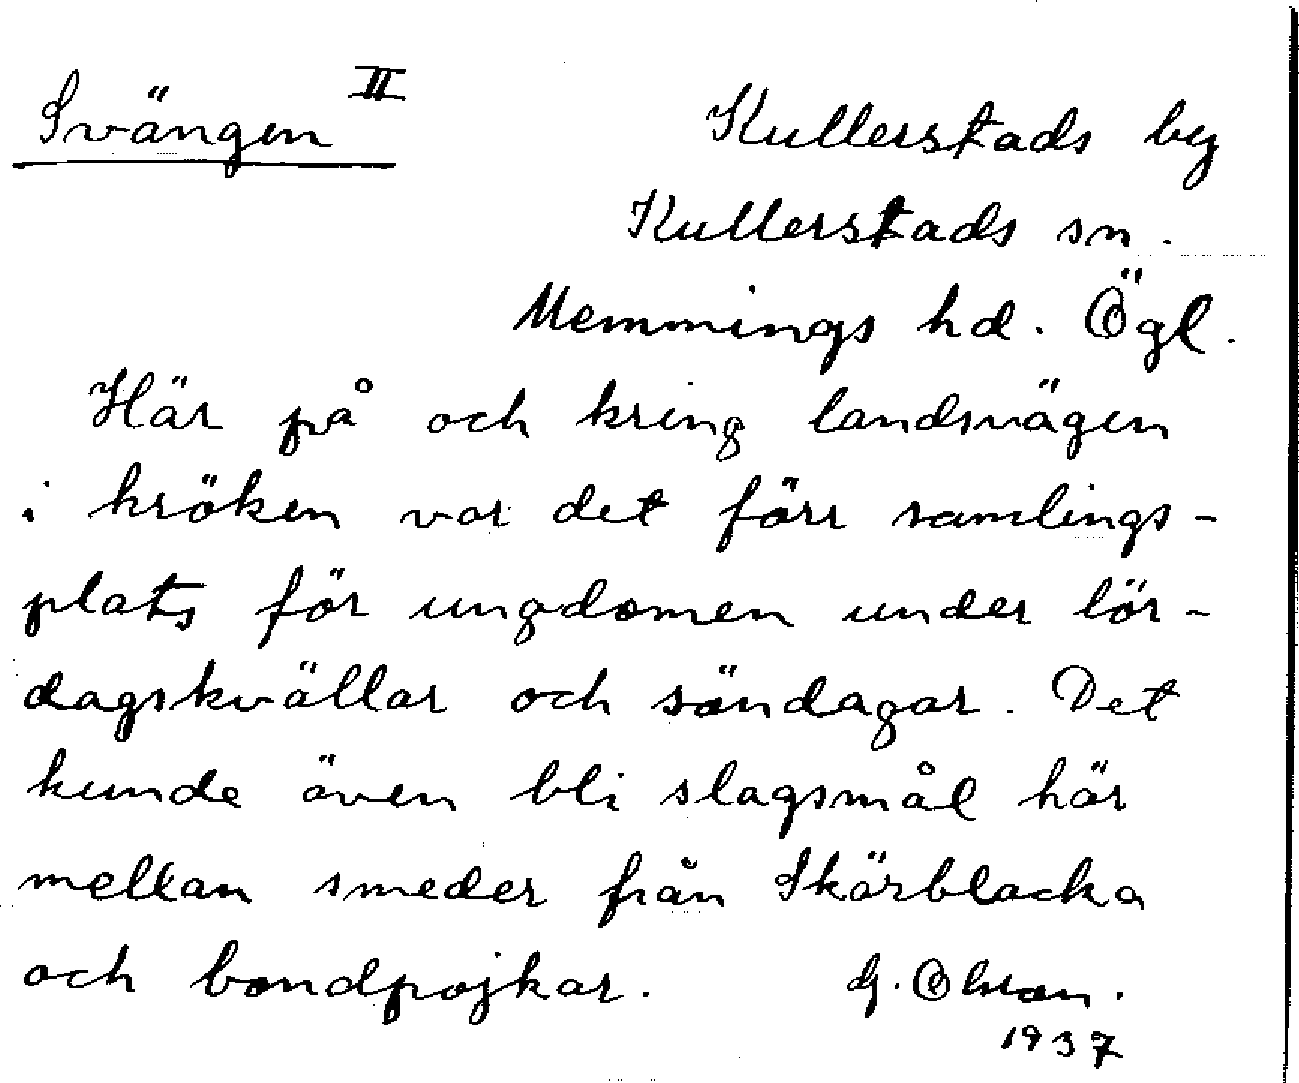 Svängen II
Kullerstads by
Kullerstads sn.
Memmings hd. Ögl.
Här på och kring landsvägen
i kröken var det förr samlings-
plats för ungdomen under lör-
dagskvällar och söndagar. Det
kunde även bli slagsmål här
mellan smeder från Skärblacka
och bondpojkar. G. Olsson.
1937